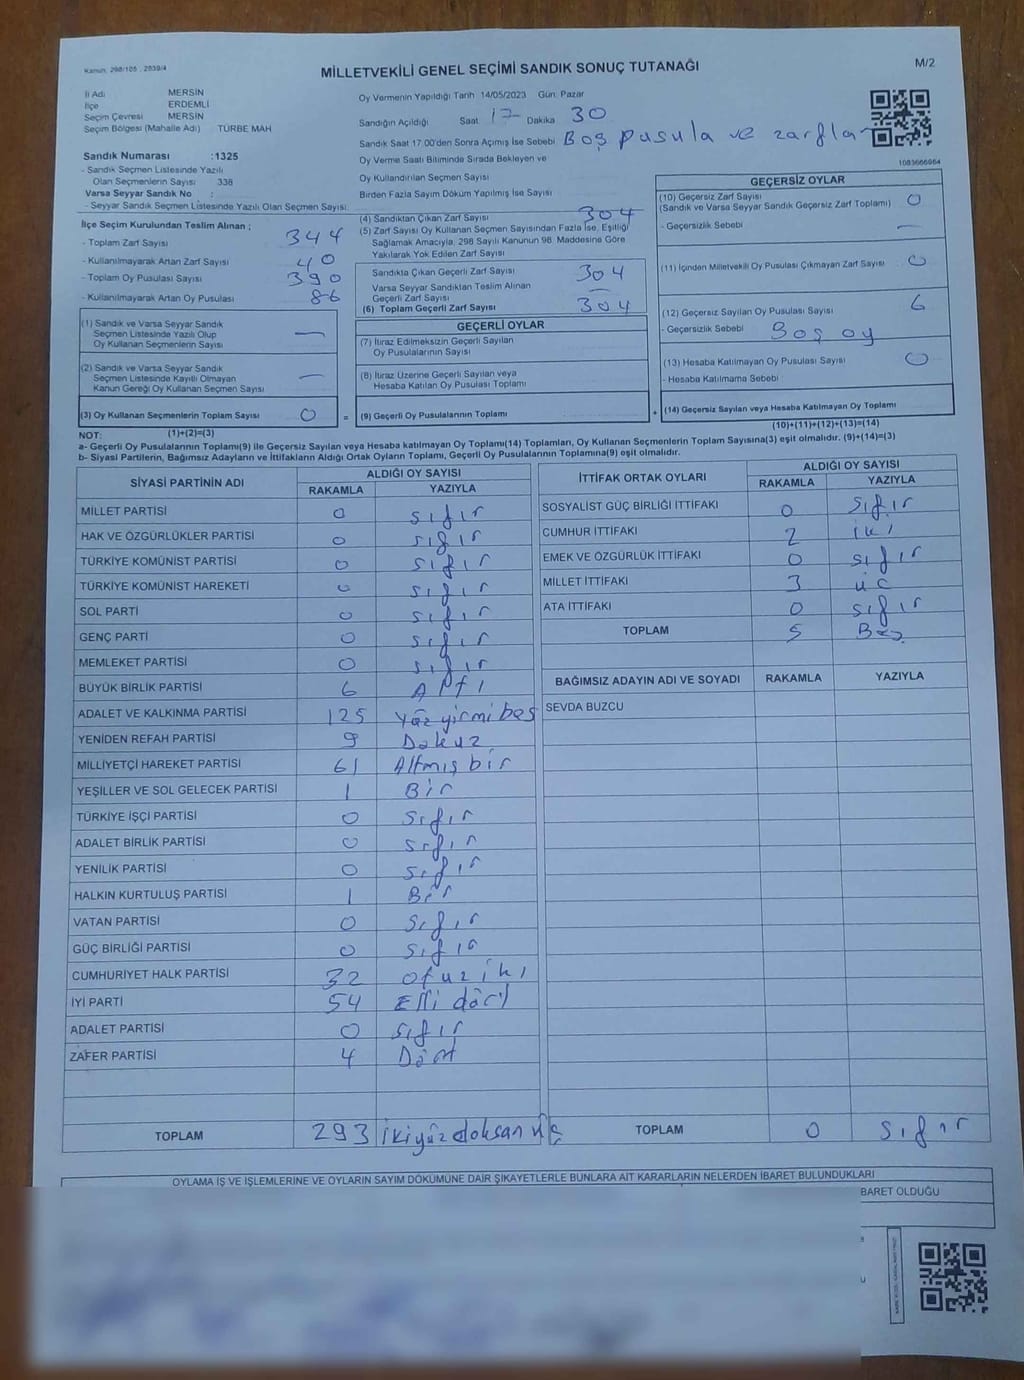 Kanun: 298/105 , 2839/4
MİLLETVEKİLİ GENEL SEÇİMİ SANDIK SONUÇ TUTANAĞI
M/2
İl Adı MERSİN
İlçe ERDEMLİ
Seçim Çevresi MERSİN
Seçim Bölgesi (Mahalle Adı) TÜRBE MAH
Sandık Numarası :1325
- Sandık Seçmen Listesinde Yazılı
Olan Seçmenlerin Sayısı 338
Varsa Seyyar Sandık No :
- Seyyar Sandık Seçmen Listesinde Yazılı Olan Seçmen Sayısı:
Oy Vermenin Yapıldığı Tarih 14/05/2023 Gün: Pazar
Sandığın Açıldığı Saat 17 Dakika 30
Sandık Saat 17.00'den Sonra Açımış İse Sebebi Boş pusula ve zarflar
Oy Verme Saati Bitiminde Sırada Bekleyen ve
Oy Kullandırılan Seçmen Sayısı
Birden Fazla Sayım Döküm Yapılmış İse Sayısı
1083666964
İlçe Seçim Kurulundan Teslim Alınan ;
- Toplam Zarf Sayısı 344
- Kullanılmayarak Artan Zarf Sayısı 40
- Toplam Oy Pusulası Sayısı 390
- Kullanılmayarak Artan Oy Pusulası 86
(1) Sandık ve Varsa Seyyar Sandık
Seçmen Listesinde Yazılı Olup
Oy Kullanan Seçmenlerin Sayısı —
(2) Sandık ve Varsa Seyyar Sandık
Seçmen Listesinde Kayıtlı Olmayan
Kanun Gereği Oy Kullanan Seçmen Sayısı —
(3) Oy Kullanan Seçmenlerin Toplam Sayısı 0 =
(1)+(2)=(3)
(4) Sandıktan Çıkan Zarf Sayısı 304
(5) Zarf Sayısı Oy Kullanan Seçmen Sayısından Fazla İse, Eşitliği
Sağlamak Amacıyla, 298 Sayılı Kanunun 98. Maddesine Göre
Yakılarak Yok Edilen Zarf Sayısı
Sandıkta Çıkan Geçerli Zarf Sayısı 304
Varsa Seyyar Sandıktan Teslim Alınan
Geçerli Zarf Sayısı —
(6) Toplam Geçerli Zarf Sayısı 304
GEÇERLİ OYLAR
(7) İtiraz Edilmeksizin Geçerli Sayılan
Oy Pusulalarının Sayısı
(8) İtiraz Üzerine Geçerli Sayılan veya
Hesaba Katılan Oy Pusulası Toplamı
(9) Geçerli Oy Pusulalarının Toplamı +
GEÇERSİZ OYLAR
(10) Geçersiz Zarf Sayısı
(Sandık ve Varsa Seyyar Sandık Geçersiz Zarf Toplamı) 0
- Geçersizlik Sebebi —
(11) İçinden Milletvekili Oy Pusulası Çıkmayan Zarf Sayısı 0
(12) Geçersiz Sayılan Oy Pusulası Sayısı 6
- Geçersizlik Sebebi Boş oy
(13) Hesaba Katılmayan Oy Pusulası Sayısı 0
- Hesaba Katılmama Sebebi
(14) Geçersiz Sayılan veya Hesaba Katılmayan Oy Toplamı
(10)+(11)+(12)+(13)=(14)
NOT:
a- Geçerli Oy Pusulalarının Toplamı(9) ile Geçersiz Sayılan veya Hesaba katılmayan Oy Toplamı(14) Toplamları, Oy Kullanan Seçmenlerin Toplam Sayısına(3) eşit olmalıdır. (9)+(14)=(3)
b- Siyasi Partilerin, Bağımsız Adayların ve İttifakların Aldığı Ortak Oyların Toplamı, Geçerli Oy Pusulalarının Toplamına(9) eşit olmalıdır.
SİYASİ PARTİNİN ADI ALDIĞI OY SAYISI
RAKAMLA YAZIYLA
MİLLET PARTİSİ 0 sıfır
HAK VE ÖZGÜRLÜKLER PARTİSİ 0 sıfır
TÜRKİYE KOMÜNİST PARTİSİ 0 sıfır
TÜRKİYE KOMÜNİST HAREKETİ 0 sıfır
SOL PARTİ 0 sıfır
GENÇ PARTİ 0 sıfır
MEMLEKET PARTİSİ 0 sıfır
BÜYÜK BİRLİK PARTİSİ 6 Altı
ADALET VE KALKINMA PARTİSİ 125 Yüz yirmi beş
YENİDEN REFAH PARTİSİ 9 Dokuz
MİLLİYETÇİ HAREKET PARTİSİ 61 Altmış bir
YEŞİLLER VE SOL GELECEK PARTİSİ 1 Bir
TÜRKİYE İŞÇİ PARTİSİ 0 sıfır
ADALET BİRLİK PARTİSİ 0 sıfır
YENİLİK PARTİSİ 0 sıfır
HALKIN KURTULUŞ PARTİSİ 1 Bir
VATAN PARTİSİ 0 sıfır
GÜÇ BİRLİĞİ PARTİSİ 0 sıfır
CUMHURİYET HALK PARTİSİ 32 otuz iki
İYİ PARTİ 54 Elli dört
ADALET PARTİSİ 0 sıfır
ZAFER PARTİSİ 4 Dört
TOPLAM 293 ikiyüz doksan üç
İTTİFAK ORTAK OYLARI ALDIĞI OY SAYISI
RAKAMLA YAZIYLA
SOSYALİST GÜÇ BİRLİĞİ İTTİFAKI 0 sıfır
CUMHUR İTTİFAKI 2 iki
EMEK VE ÖZGÜRLÜK İTTİFAKI 0 sıfır
MİLLET İTTİFAKI 3 üç
ATA İTTİFAKI 0 sıfır
TOPLAM 5 Beş
BAĞIMSIZ ADAYIN ADI VE SOYADI RAKAMLA YAZIYLA
SEVDA BUZCU
TOPLAM 0 sıfır
OYLAMA İŞ VE İŞLEMLERİNE VE OYLARIN SAYIM DÖKÜMÜNE DAİR ŞİKAYETLERLE BUNLARA AİT KARARLARIN NELERDEN İBARET BULUNDUKLARI
BARET OLDUĞU